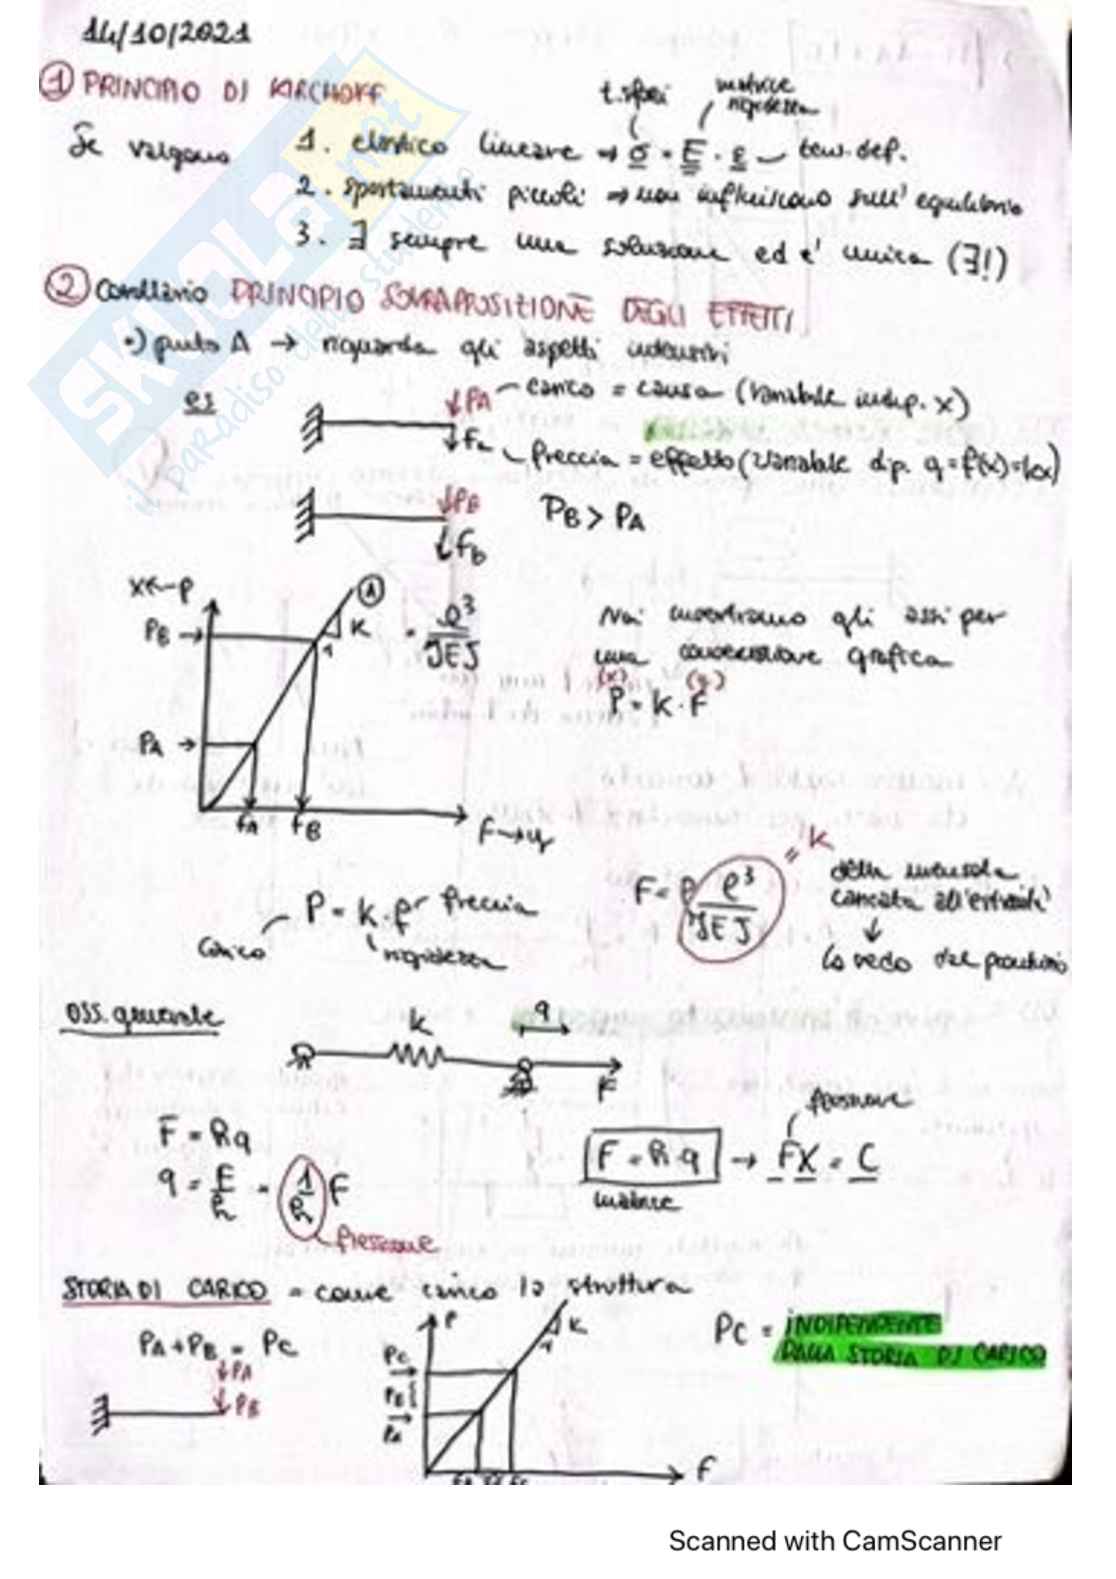 14/10/2021
① PRINCIPIO DI KIRCHOFF
t. sforzi matrice rigidezza
Se valgono 1. elastico lineare → σ = E · ε tens. def.
2. Spostamenti piccoli → non influiscono sull'equilibrio
3. ∃ sempre una soluzione ed e' unica (∃!)
② Corollario PRINCIPIO SOVRAPPOSIZIONE DEGLI EFFETTI
•) punto A → riguarda gli aspetti intensivi
es PA carico = causa (variabile indip. x)
FA freccia = effetto (variabile dip. y = f(x) = kx)
PB
fB PB > PA
x ← P
PB → K 1 = l³/3EJ
PA →
fA fB F → y
Noi invertiamo gli assi per
una convenzione grafica
(x) (y)
P = k · F
P = k · f freccia
carico rigidezza
F = P l³/3EJ = k
della mensola
caricata all'estremità
↓
lo vedo dal prontuario
OSS. generale
k q F
F = kq
q = F/k = (1/k) F
flessione
F = k · q → FX = C
matrice
STORIA DI CARICO = come carico la struttura
PA + PB = PC
PA
PB
P K 1
PC
PB
PA
F
PC = INDIPENDENTE
DALLA STORIA DI CARICO
SKUOLA.net
il paradiso dello studente
Scanned with CamScanner